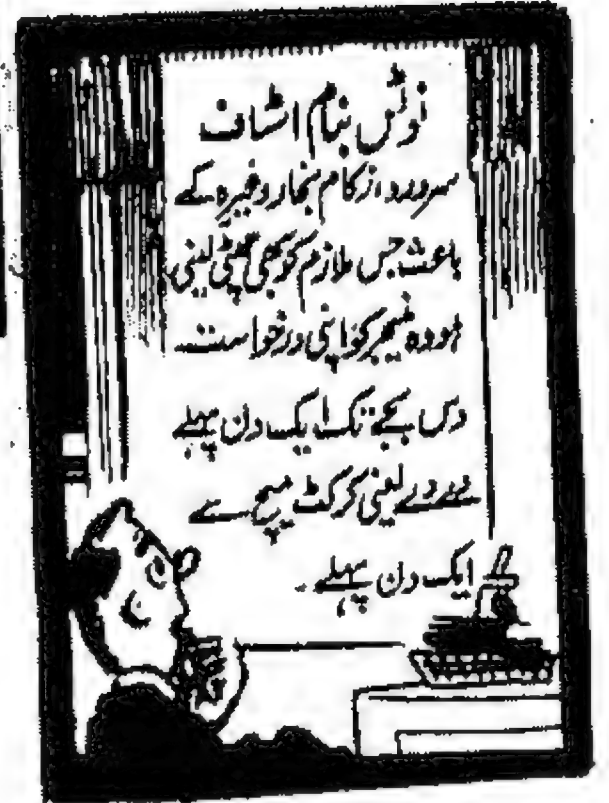 نوٹس بنام اسٹاف
سردرد، زکام بخار وغیرہ کے
باعث جس ملازم کو بھی چھٹی لینی
ہو وہ منیجر کو اپنی درخواست
دس بجے تک ایک دن پہلے
دے دے یعنی کرکٹ میچ سے
ایک دن پہلے۔